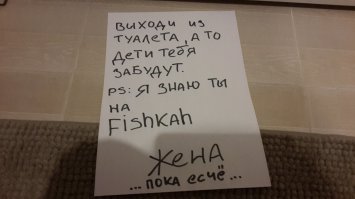 ВЫХОДИ ИЗ
ТУАЛЕТА, А ТО
ДЕТИ ТЕБЯ
ЗАБУДУТ.
PS: Я ЗНАЮ ТЫ
НА
FiSHKAH
ЖЕНА
...ПОКА ЕСЧЁ...